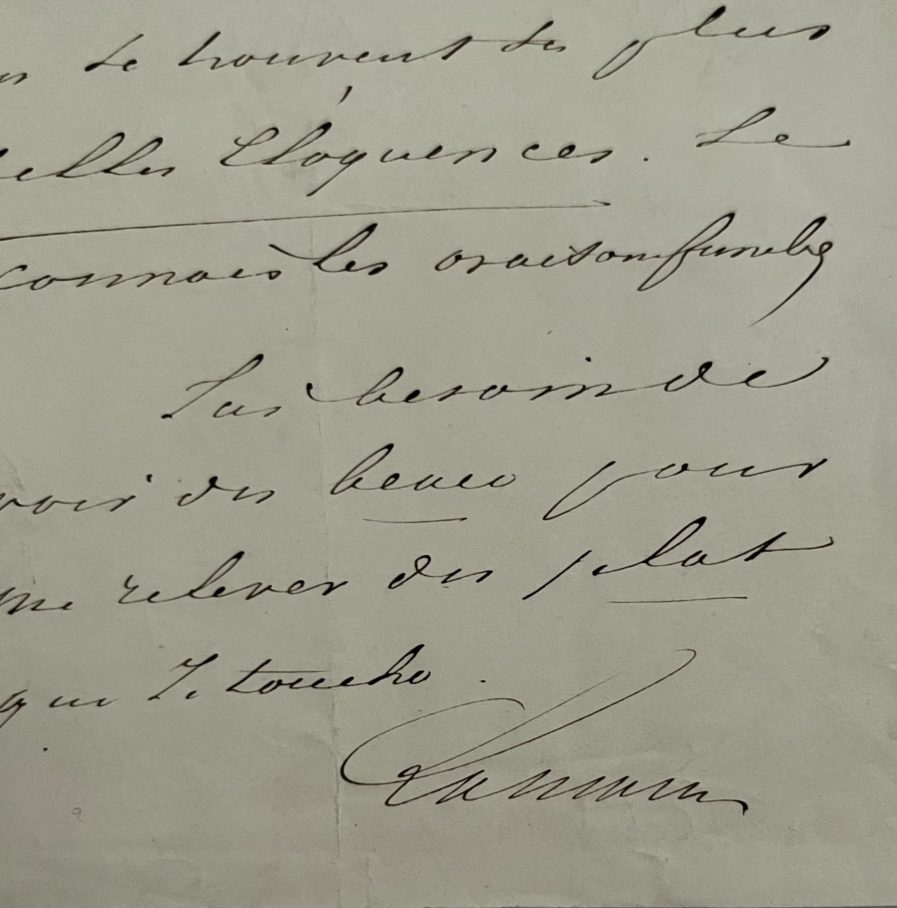 se trouvent les plus
belles Eloquences. Je
connais les oraisons funebres
J'ai besoin de
voir du beau pour
me relever du plat
que je touche.